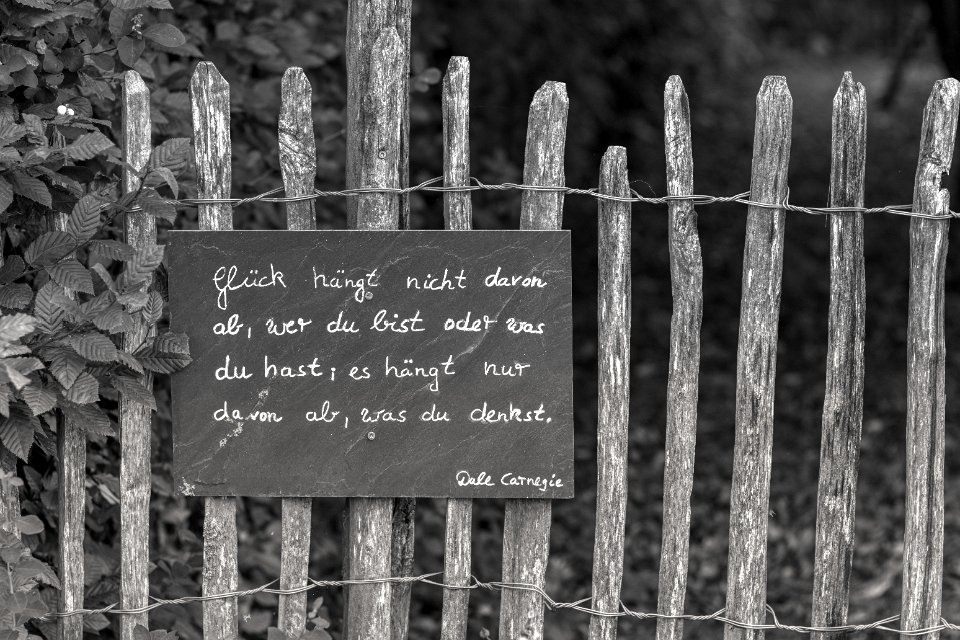 Glück hängt nicht davon
ab, wer du bist oder was
du hast; es hängt nur
davon ab, was du denkst.
Dale Carnegie